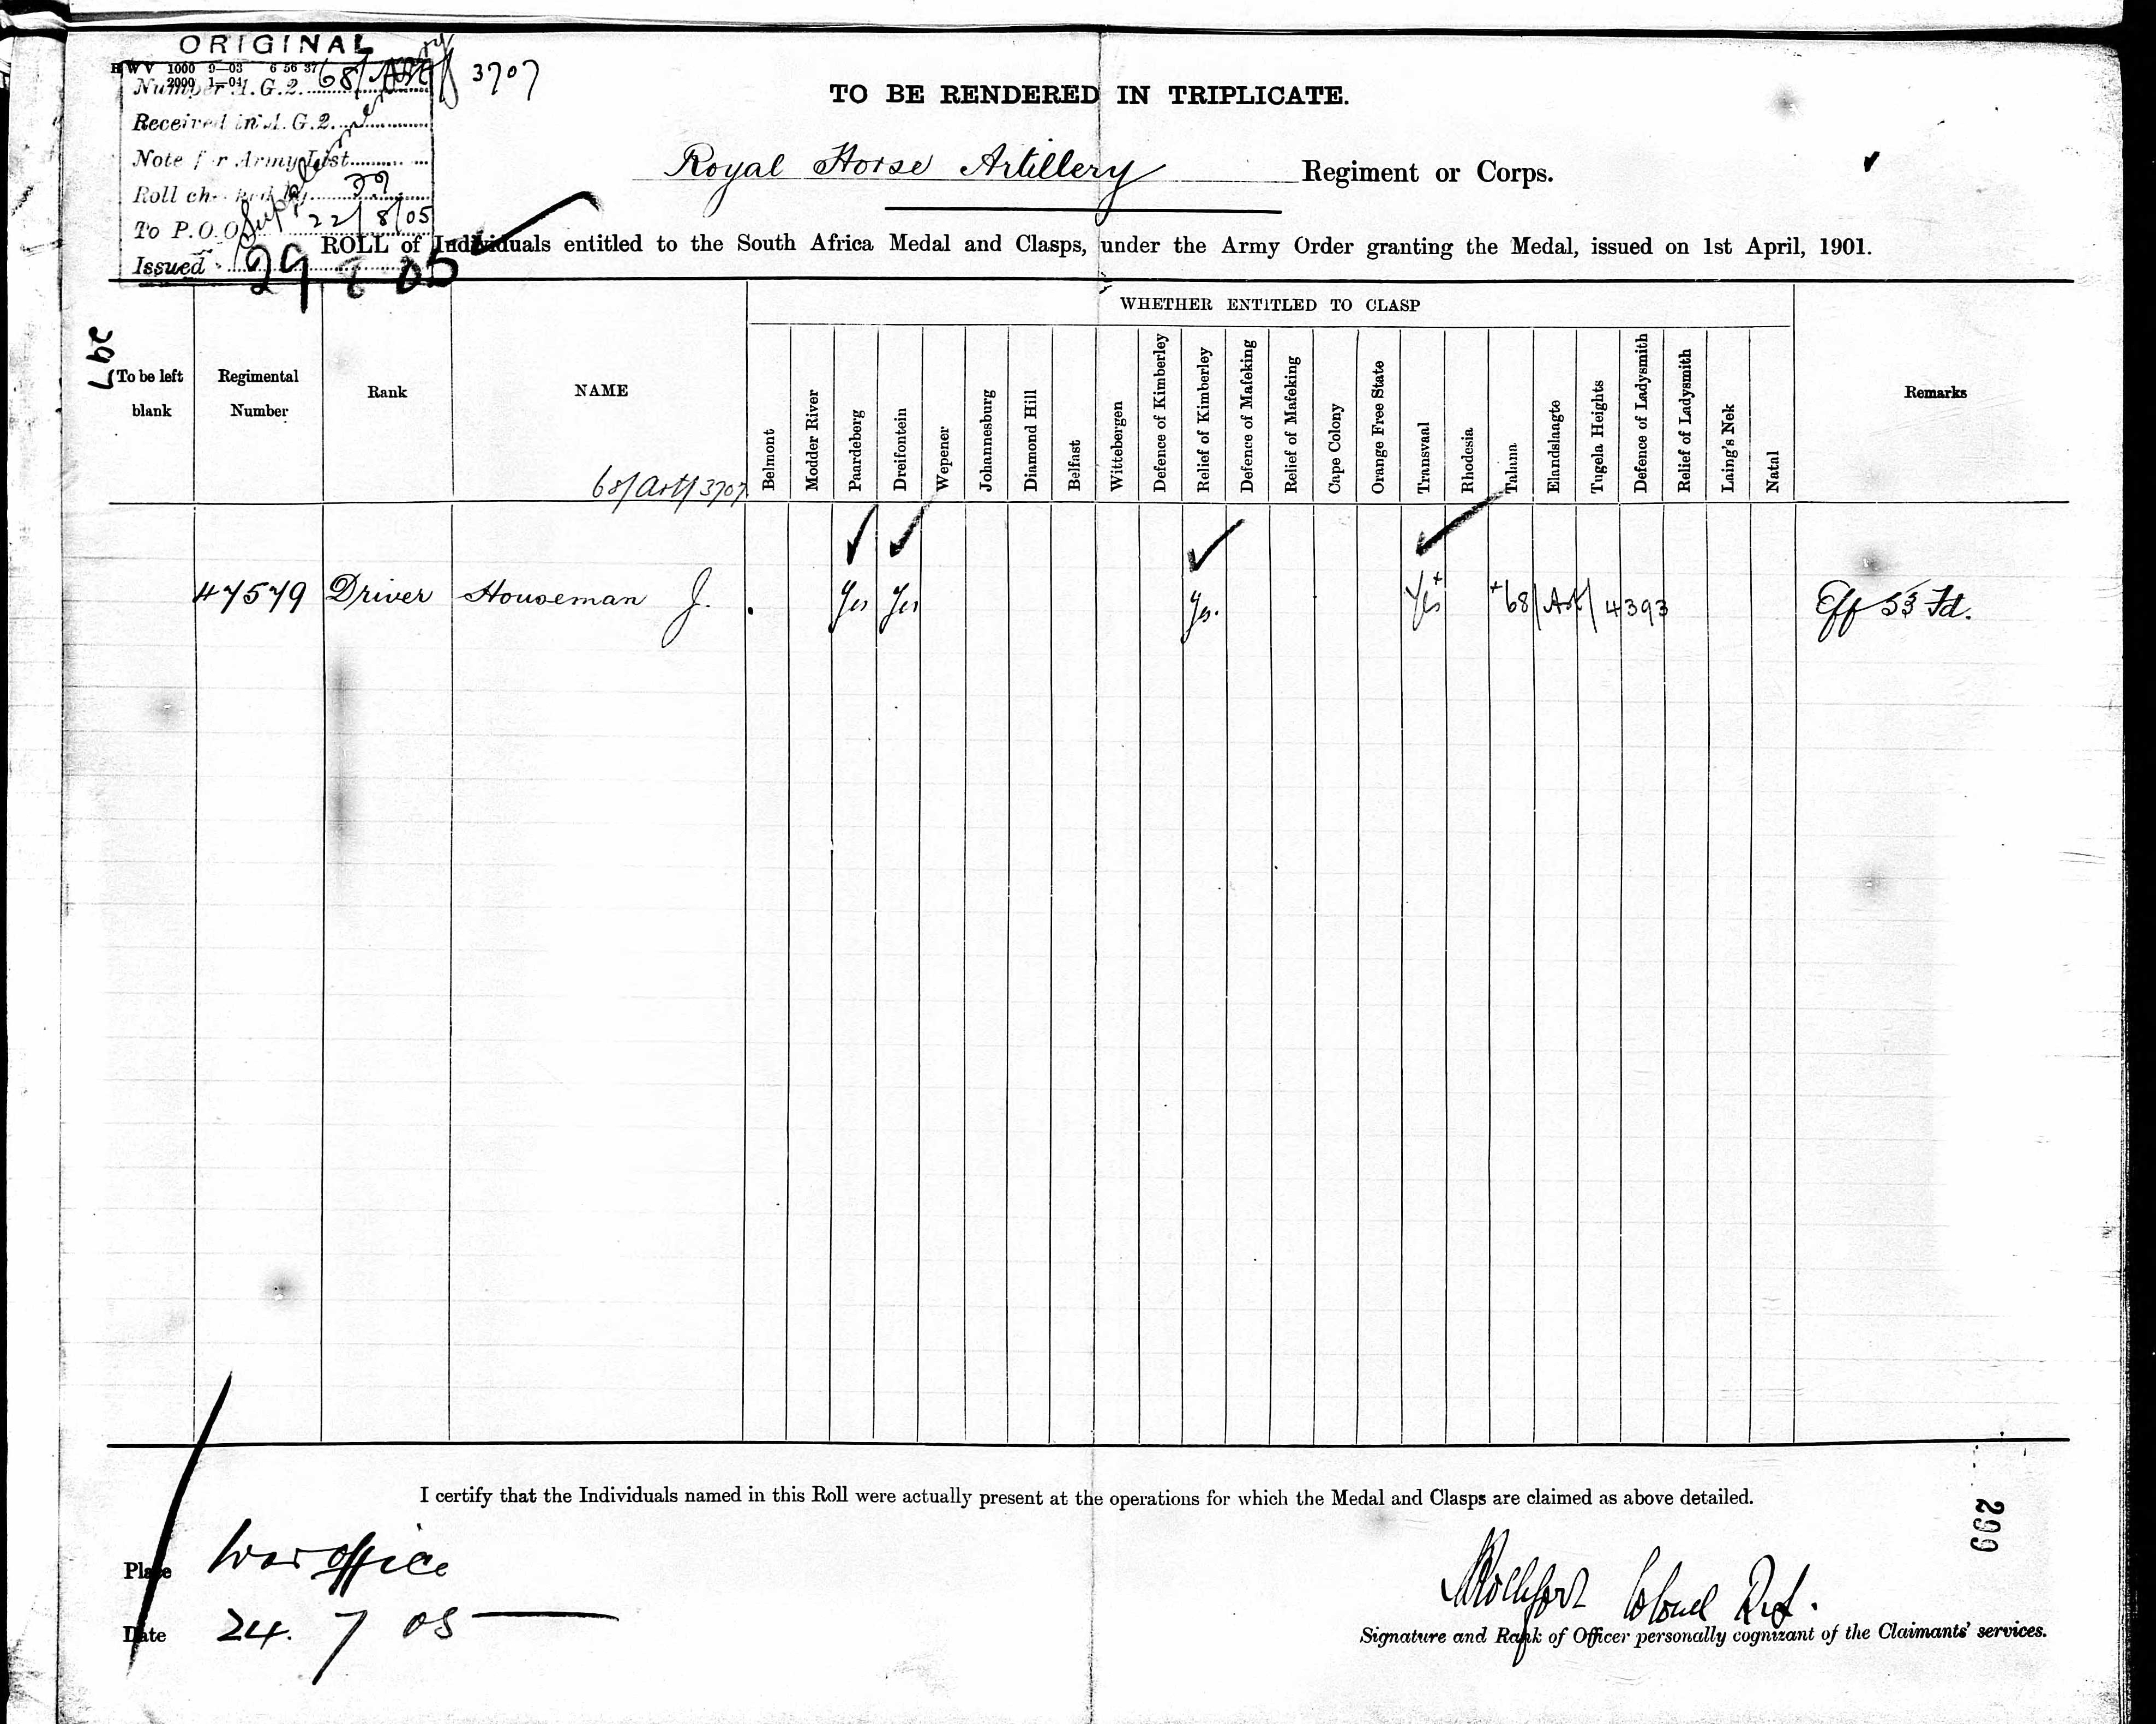 ORIGINAL
HWV 1000 9—03 6 56 37
2000 1—04
Number A.G.2. 68/Arty/3707
Received in A.G.2.
Note for Army List
Roll checked by
To P.O.O. 22/8/05
Issued 29 8 05
Supplementary
TO BE RENDERED IN TRIPLICATE.
Royal Horse Artillery Regiment or Corps.
ROLL of Individuals entitled to the South Africa Medal and Clasps, under the Army Order granting the Medal, issued on 1st April, 1901.
297
WHETHER ENTITLED TO CLASP
To be left blank
Regimental Number
Rank
NAME
68/Art/3707
Belmont
Modder River
Paardeberg
Dreifontein
Wepener
Johannesburg
Diamond Hill
Belfast
Wittebergen
Defence of Kimberley
Relief of Kimberley
Defence of Mafeking
Relief of Mafeking
Cape Colony
Orange Free State
Transvaal
Rhodesia
Talana
Elandslaagte
Tugela Heights
Defence of Ladysmith
Relief of Ladysmith
Laing's Nek
Natal
Remarks
47579 Driver Houseman J. Yes Yes Yes. Yes + +68/Art/4393 Eff 53 Fd.
I certify that the Individuals named in this Roll were actually present at the operations for which the Medal and Clasps are claimed as above detailed.
Place War office
Date 24. 7 05
Colonel
Signature and Rank of Officer personally cognizant of the Claimants' services.
299